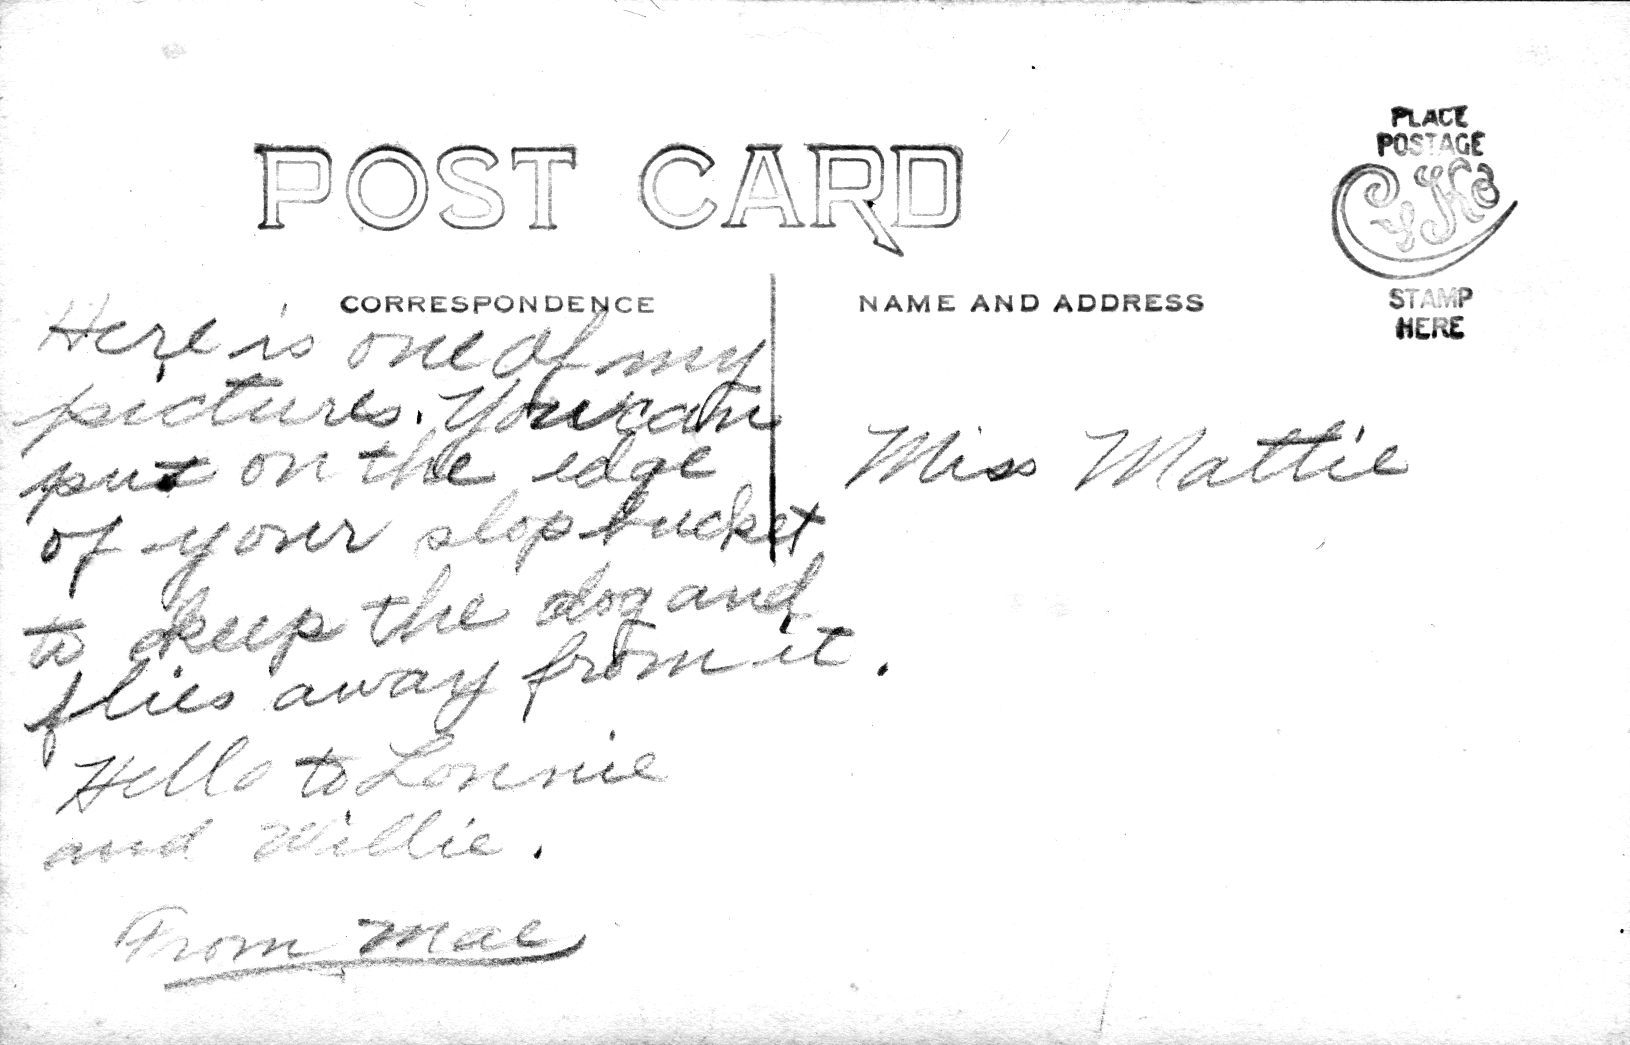 POST CARD
PLACE
POSTAGE
CYKO
STAMP
HERE
CORRESPONDENCE
NAME AND ADDRESS
Here is one of my
pictures. You can
put on the edge
of your slop bucket
to keep the dog and
flies away from it.
Hello to Lonnie
and Willie.
From Mae
Miss Mattie